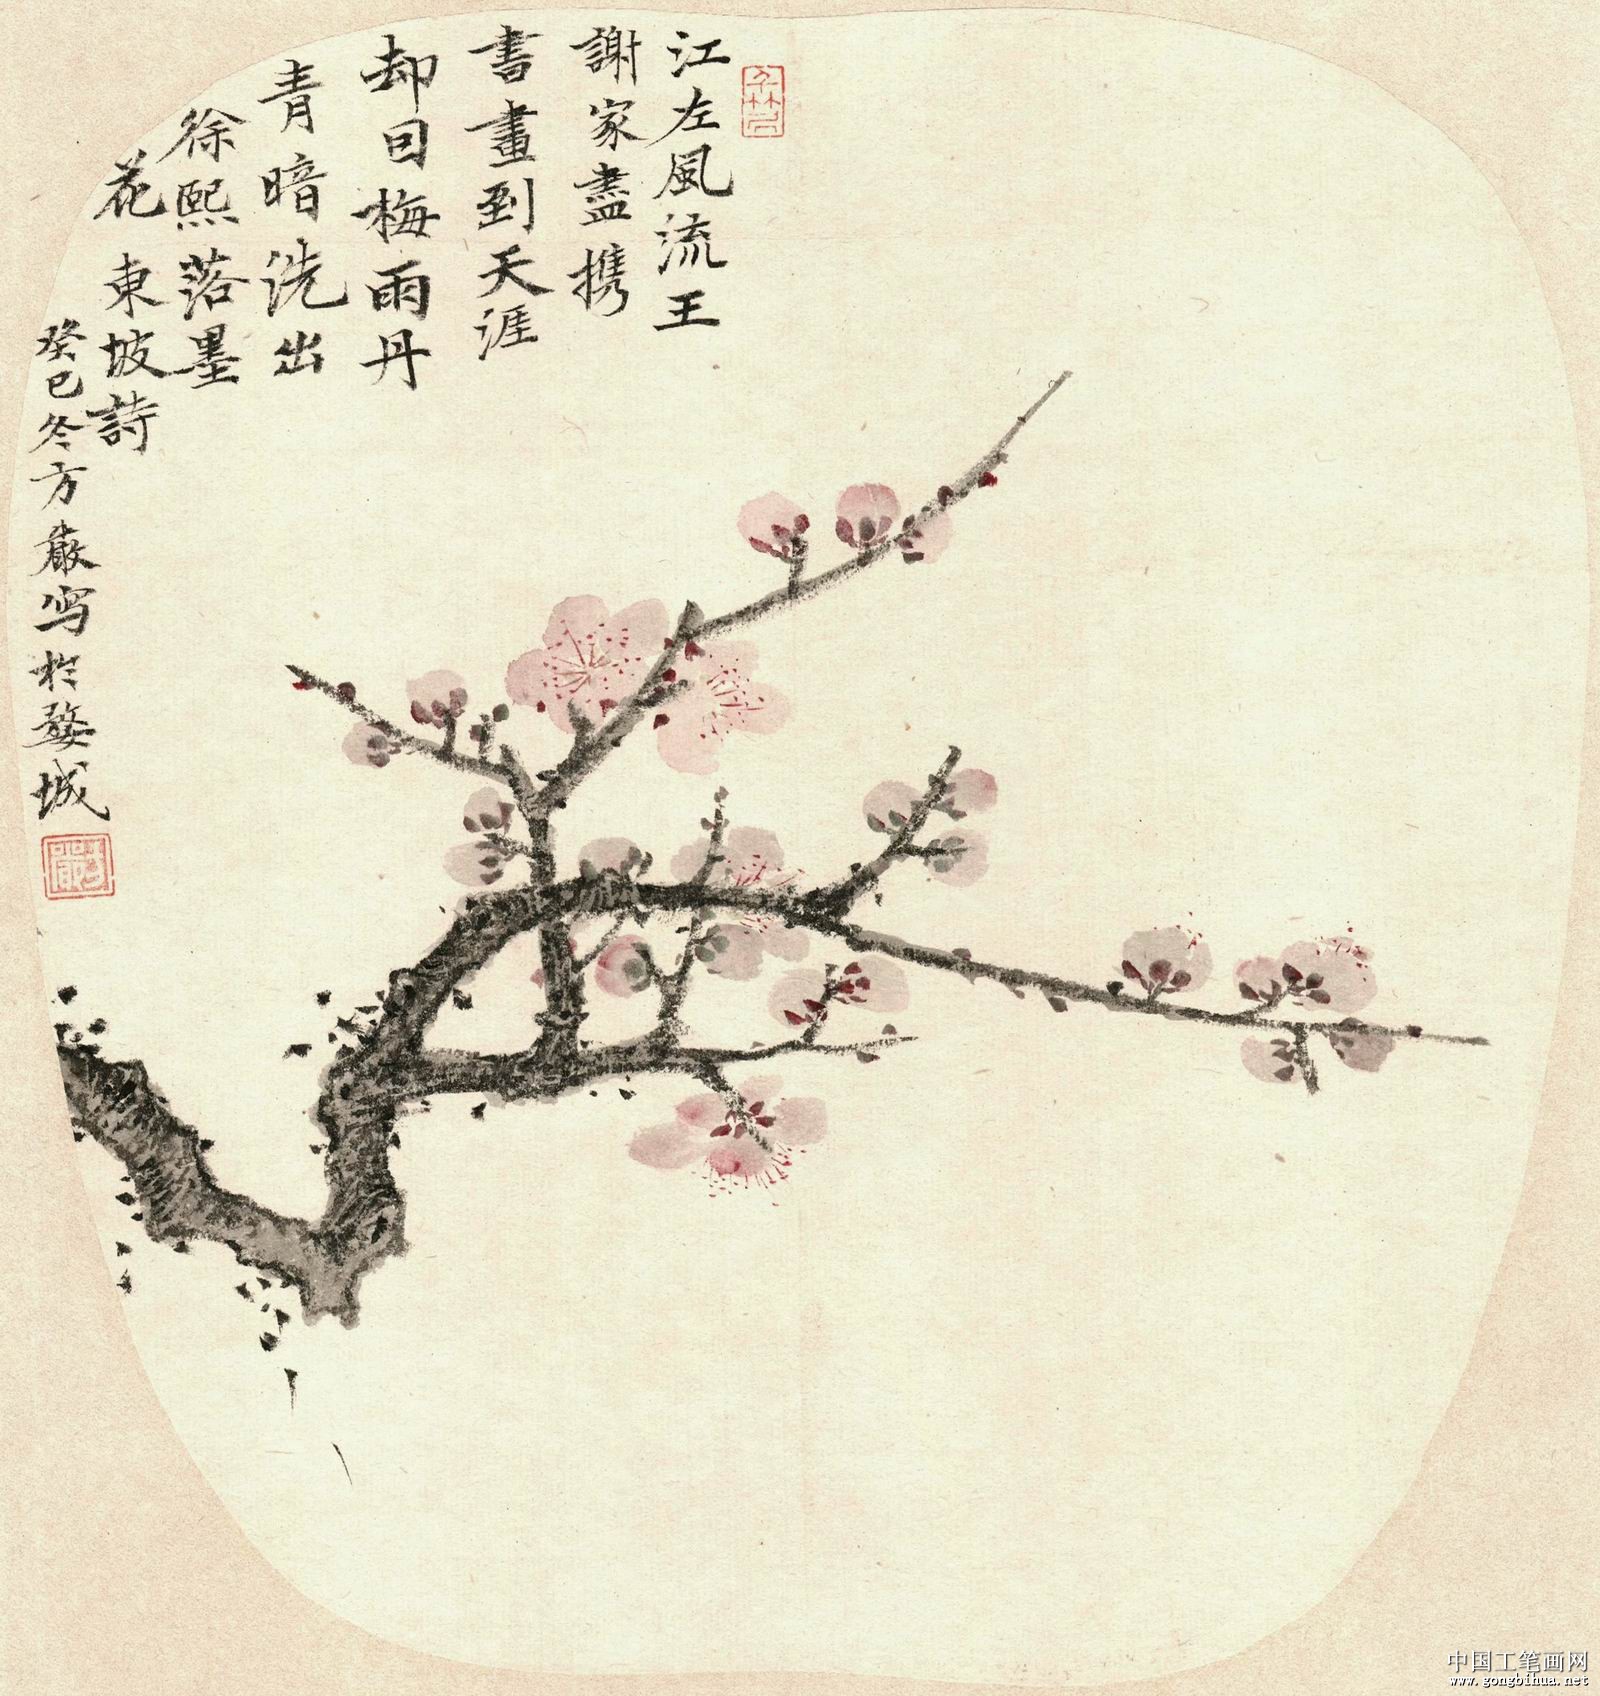 江左風流王
謝家盡携
書畫到天涯
却因梅雨丹
青暗洗出
徐熙落墨
花東坡詩
癸巳冬方嚴写於婺城
中国工笔画网
www.gongbihua.net